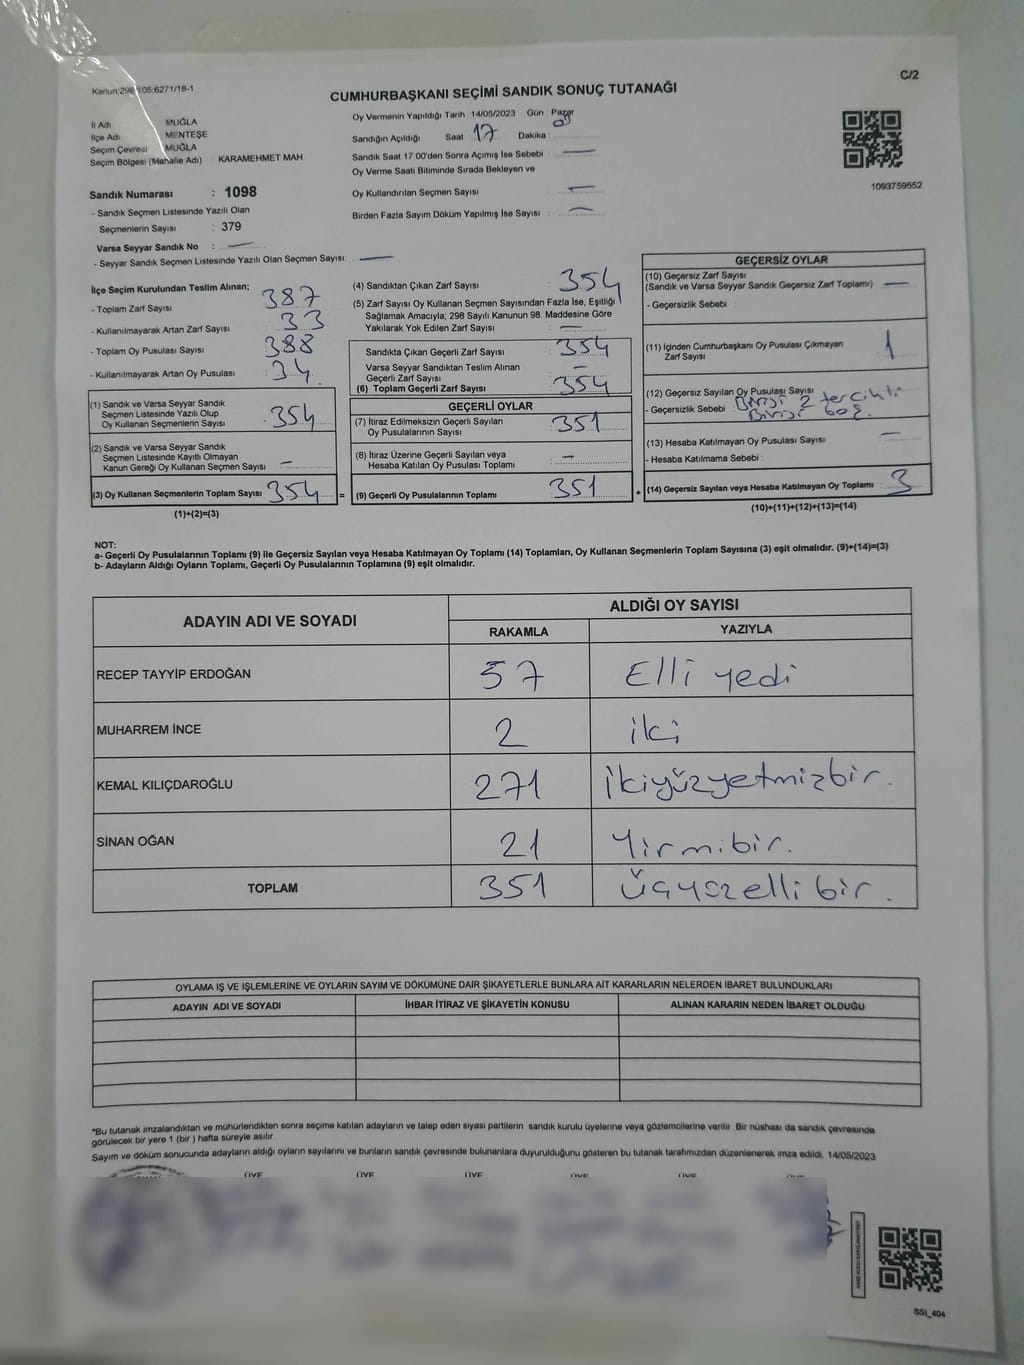 C/2
Kanun;298/105;6271/18-1
CUMHURBAŞKANI SEÇİMİ SANDIK SONUÇ TUTANAĞI
İl Adı MUĞLA
İlçe Adı MENTEŞE
Seçim Çevresi MUĞLA
Seçim Bölgesi (Mahalle Adı) KARAMEHMET MAH
Sandık Numarası : 1098
- Sandık Seçmen Listesinde Yazılı Olan
Seçmenlerin Sayısı : 379
Varsa Seyyar Sandık No : —
- Seyyar Sandık Seçmen Listesinde Yazılı Olan Seçmen Sayısı: —
Oy Vermenin Yapıldığı Tarih 14/05/2023 Gün Pazar
Sandığın Açıldığı Saat 17 Dakika :
Sandık Saat 17:00'den Sonra Açımış İse Sebebi : —
Oy Verme Saati Bitiminde Sırada Bekleyen ve
Oy Kullandırılan Seçmen Sayısı : —
Birden Fazla Sayım Döküm Yapılmış İse Sayısı : —
1093759552
İlçe Seçim Kurulundan Teslim Alınan;
- Toplam Zarf Sayısı 387
- Kullanılmayarak Artan Zarf Sayısı 33
- Toplam Oy Pusulası Sayısı 388
- Kullanılmayarak Artan Oy Pusulası 34
(1) Sandık ve Varsa Seyyar Sandık
Seçmen Listesinde Yazılı Olup
Oy Kullanan Seçmenlerin Sayısı 354
(2) Sandık ve Varsa Seyyar Sandık
Seçmen Listesinde Kayıtlı Olmayan
Kanun Gereği Oy Kullanan Seçmen Sayısı —
(3) Oy Kullanan Seçmenlerin Toplam Sayısı 354 =
(1)+(2)=(3)
(4) Sandıktan Çıkan Zarf Sayısı : 354
(5) Zarf Sayısı Oy Kullanan Seçmen Sayısından Fazla İse, Eşitliği
Sağlamak Amacıyla, 298 Sayılı Kanunun 98. Maddesine Göre
Yakılarak Yok Edilen Zarf Sayısı : —
Sandıkta Çıkan Geçerli Zarf Sayısı : 354
Varsa Seyyar Sandıktan Teslim Alınan
Geçerli Zarf Sayısı : —
(6) Toplam Geçerli Zarf Sayısı : 354
GEÇERLİ OYLAR
(7) İtiraz Edilmeksizin Geçerli Sayılan
Oy Pusulalarının Sayısı : 351
(8) İtiraz Üzerine Geçerli Sayılan veya
Hesaba Katılan Oy Pusulası Toplamı : —
(9) Geçerli Oy Pusulalarının Toplamı : 351 +
GEÇERSİZ OYLAR
(10) Geçersiz Zarf Sayısı
(Sandık ve Varsa Seyyar Sandık Geçersiz Zarf Toplamı) : —
- Geçersizlik Sebebi :
(11) İçinden Cumhurbaşkanı Oy Pusulası Çıkmayan
Zarf Sayısı : 1
(12) Geçersiz Sayılan Oy Pusulası Sayısı :
- Geçersizlik Sebebi : Birisi 2 tercihli
Birisi boş.
(13) Hesaba Katılmayan Oy Pusulası Sayısı : —
- Hesaba Katılmama Sebebi :
(14) Geçersiz Sayılan veya Hesaba Katılmayan Oy Toplamı : 3
(10)+(11)+(12)+(13)=(14)
NOT:
a- Geçerli Oy Pusulalarının Toplamı (9) ile Geçersiz Sayılan veya Hesaba Katılmayan Oy Toplamı (14) Toplamları, Oy Kullanan Seçmenlerin Toplam Sayısına (3) eşit olmalıdır. (9)+(14)=(3)
b- Adayların Aldığı Oyların Toplamı, Geçerli Oy Pusulalarının Toplamına (9) eşit olmalıdır.
ADAYIN ADI VE SOYADI ALDIĞI OY SAYISI
RAKAMLA YAZIYLA
RECEP TAYYİP ERDOĞAN 57 Elli yedi
MUHARREM İNCE 2 iki
KEMAL KILIÇDAROĞLU 271 İkiyüzyetmizbir.
SİNAN OĞAN 21 Yirmibir.
TOPLAM 351 Üçyüzellibir.
OYLAMA İŞ VE İŞLEMLERİNE VE OYLARIN SAYIM VE DÖKÜMÜNE DAİR ŞİKAYETLERLE BUNLARA AİT KARARLARIN NELERDEN İBARET BULUNDUKLARI
ADAYIN ADI VE SOYADI İHBAR İTİRAZ VE ŞİKAYETİN KONUSU ALINAN KARARIN NEDEN İBARET OLDUĞU
*Bu tutanak imzalandıktan ve mühürlendikten sonra seçime katılan adayların ve talep eden siyasi partilerin sandık kurulu üyelerine veya gözlemcilerine verilir. Bir nüshası da sandık çevresinde
görülecek bir yere 1 (bir ) hafta süreyle asılır.
Sayım ve döküm sonucunda adayların aldığı oyların sayılarını ve bunların sandık çevresinde bulunanlara duyurulduğunu gösteren bu tutanak tarafımızdan düzenlenerek imza edildi. 14/05/2023
ÜYE ÜYE ÜYE ÜYE ÜYE ÜYE
SSI_404